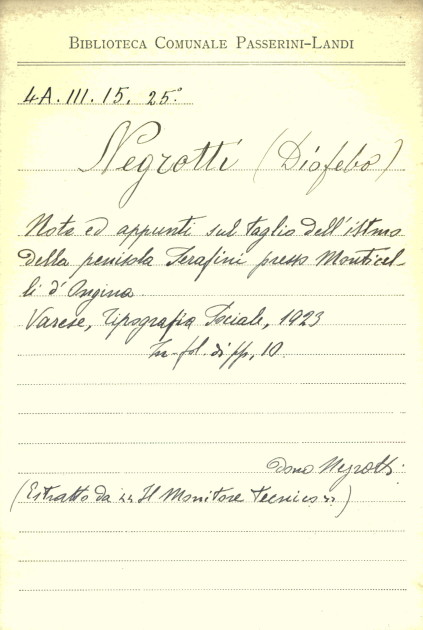 BIBLIOTECA COMUNALE PASSERINI-LANDI
4A. III. 15. 25°
Negrotti (Diofebo)
Note ed appunti sul taglio dell'istmo
della penisola Serafini presso Monticel-
li d'Ongina
Varese, Tipografia Sociale, 1923
In-fol. di pp. 10.
Dono Negrotti.
(Estratto da "Il Monitore Tecnico")